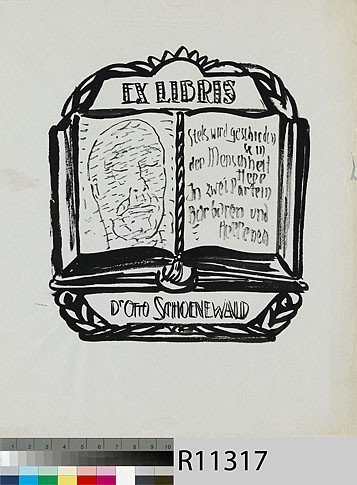 EX LIBRIS
Stets wird geschieden
sein
der Menschheit
Heer
In zwei Partein
Barbaren und
Hellenen
Dr OTTO SCHOENEWALD
R11317